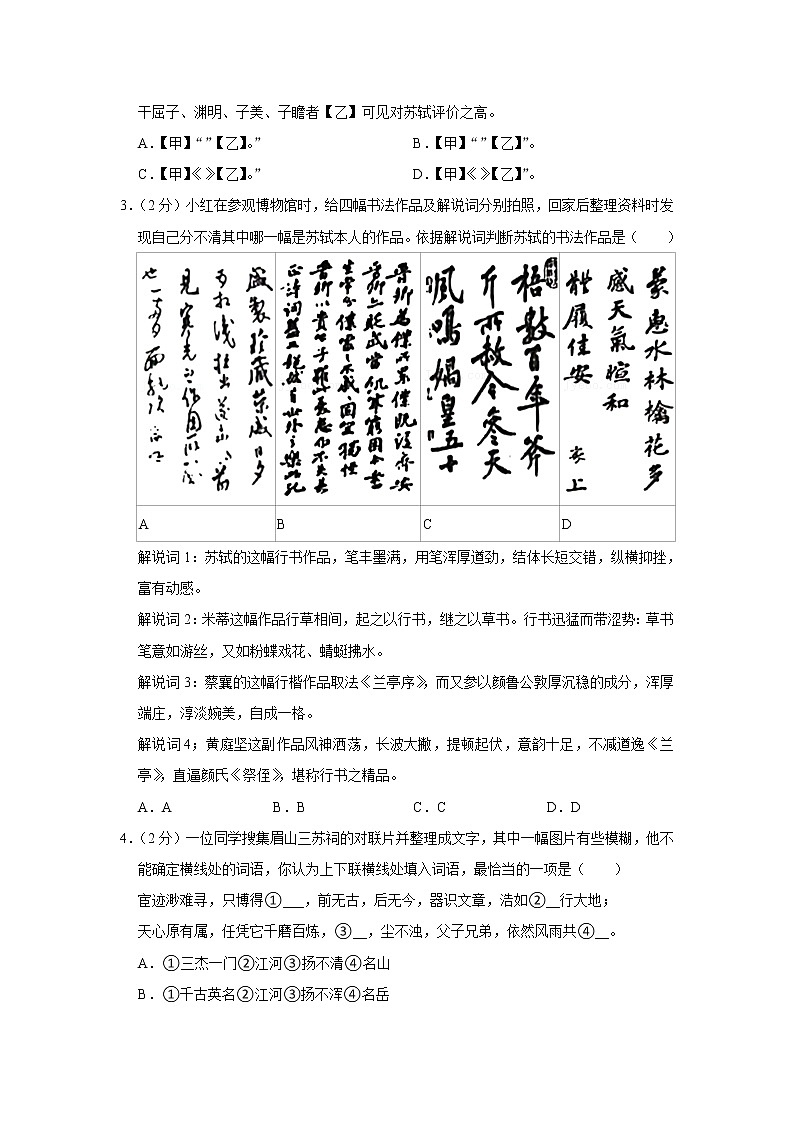 干屈子、渊明、子美、子瞻者【乙】可见对苏轼评价之高。
A.【甲】“ ”【乙】。” B.【甲】“ ”【乙】”。
C.【甲】《 》【乙】。” D.【甲】《 》【乙】”。
3.（2 分）小红在参观博物馆时，给四幅书法作品及解说词分别拍照，回家后整理资料时发
现自己分不清其中哪一幅是苏轼本人的作品。依据解说词判断苏轼的书法作品是（　　）
梧数百年斧
斤所赦今参天
风鸣娲皇五十
蒙惠水林檎花多
感天气暄和
体履佳安 襄上
A B C D
解说词 1：苏轼的这幅行书作品，笔丰墨满，用笔浑厚道劲，结体长短交错，纵横抑挫，
富有动感。
解说词 2：米蒂这幅作品行草相间，起之以行书，继之以草书。行书迅猛而带涩势：草书
笔意如游丝，又如粉蝶戏花、蜻蜓拂水。
解说词 3：蔡襄的这幅行楷作品取法《兰亭序》，而又参以颜鲁公敦厚沉稳的成分，浑厚
端庄，淳淡婉美，自成一格。
解说词 4；黄庭坚这副作品风神洒荡，长波大撇，提顿起伏，意韵十足，不减道逸《兰
亭》，直逼颜氏《祭侄》，堪称行书之精品。
A．A B．B C．C D．D
4.（2 分）一位同学搜集眉山三苏祠的对联片并整理成文字，其中一幅图片有些模糊，他不
能确定横线处的词语，你认为上下联横线处填入词语，最恰当的一项是（　　）
宦迹渺难寻，只博得①___，前无古，后无今，器识文章，浩如②__行大地；
天心原有属，任凭它千磨百炼，③__，尘不浊，父子兄弟，依然风雨共④__。
A．①三杰一门②江河③扬不清④名山
B．①千古英名②江河③扬不浑④名岳